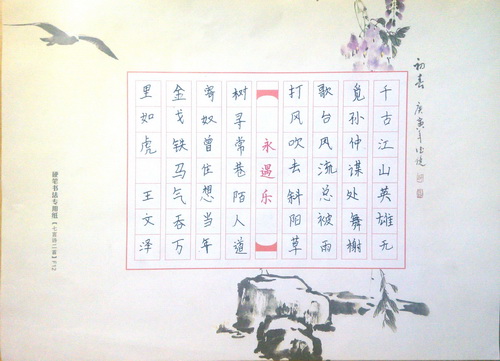 初春 庚寅年
千古江山英雄无
觅孙仲谋处舞榭
歌台风流总被雨
打风吹去斜阳草
永遇乐
树寻常巷陌人道
寄奴曾住想当年
金戈铁马气吞万
里如虎 王文泽
硬笔书法专用纸【七言诗二首】F12